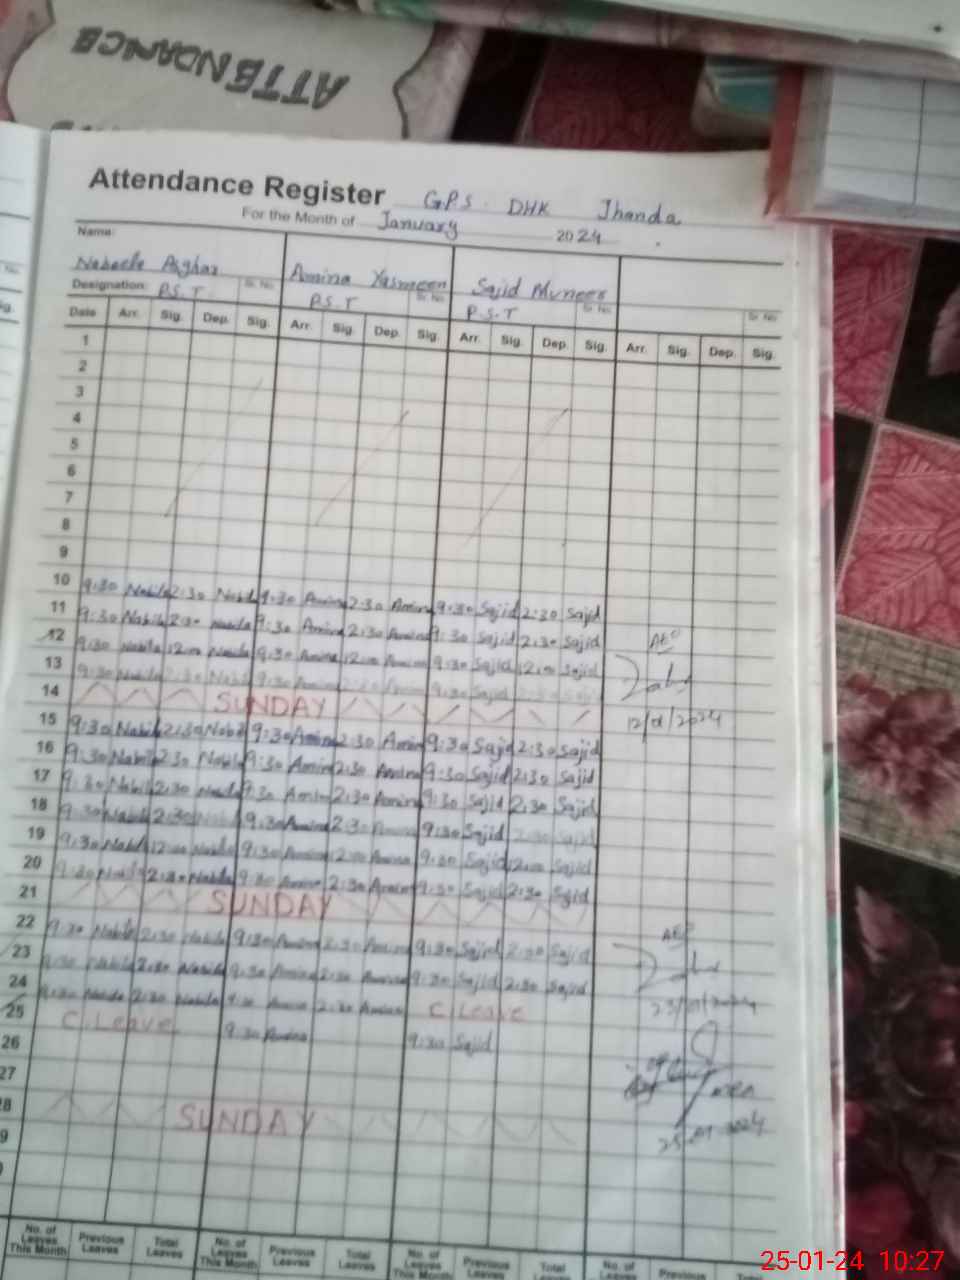 ATTENDANCE
Attendance Register GPS DHK Jhanda
For the Month of January 2024
Name:
Amina Yasmeen Sajid Muneer
Designation: P.S.T Sr. No. P.S.T Sr. No. P.S.T Sr. No. Sr. No.
Date Arr. Sig. Dep. Sig. Arr. Sig. Dep. Sig. Arr. Sig. Dep. Sig. Arr. Sig. Dep. Sig.
1
2
3
4
5
6
7
8
9
10 9:30 Nabila 2:30 Nabila 9:30 Amina 2:30 Amina 9:30 Sajid 2:30 Sajid
11 9:30 Nabila 2:30 Nabila 9:30 Amina 2:30 Amina 9:30 Sajid 2:30 Sajid
12 9:30 Nabila 12:00 Nabila 9:30 Amina 12:00 Amina 9:30 Sajid 12:00 Sajid AEO
13 9:30 Nabila 2:30 Nabila 9:30 Amina 2:30 Amina 9:30 Sajid 2:30 Sajid
14 SUNDAY
12/01/2024
15 9:30 Nabila 2:30 Nabila 9:30 Amina 2:30 Amina 9:30 Sajid 2:30 Sajid
16 9:30 Nabila 2:30 Nabila 9:30 Amina 2:30 Amina 9:30 Sajid 2:30 Sajid
17 9:30 Nabila 2:30 Nabila 9:30 Amina 2:30 Amina 9:30 Sajid 2:30 Sajid
18 9:30 Nabila 2:30 Nabila 9:30 Amina 2:30 Amina 9:30 Sajid 2:30 Sajid
19 9:30 Nabila 12:00 Nabila 9:30 Amina 12:00 Amina 9:30 Sajid 12:00 Sajid
20 9:30 Nabila 2:30 Nabila 9:30 Amina 2:30 Amina 9:30 Sajid 2:30 Sajid
21 SUNDAY
22 9:30 Nabila 2:30 Nabila 9:30 Amina 2:30 Amina 9:30 Sajid 2:30 Sajid AEO
23 9:30 Nabila 2:30 Nabila 9:30 Amina 2:30 Amina 9:30 Sajid 2:30 Sajid
24 9:30 Nabila 2:30 Nabila 9:30 Amina 2:30 Amina C. Leave
23/01/2024
25 C. Leave 9:30 Amina 9:30 Sajid
26
27
28 SUNDAY
25.01.2024
No. of Leaves This Month Previous Leaves Total Leaves No. of Leaves This Month Previous Leaves Total Leaves No. of Leaves This Month Previous Leaves Total Leaves No. of Leaves Previous Total
25-01-24 10:27